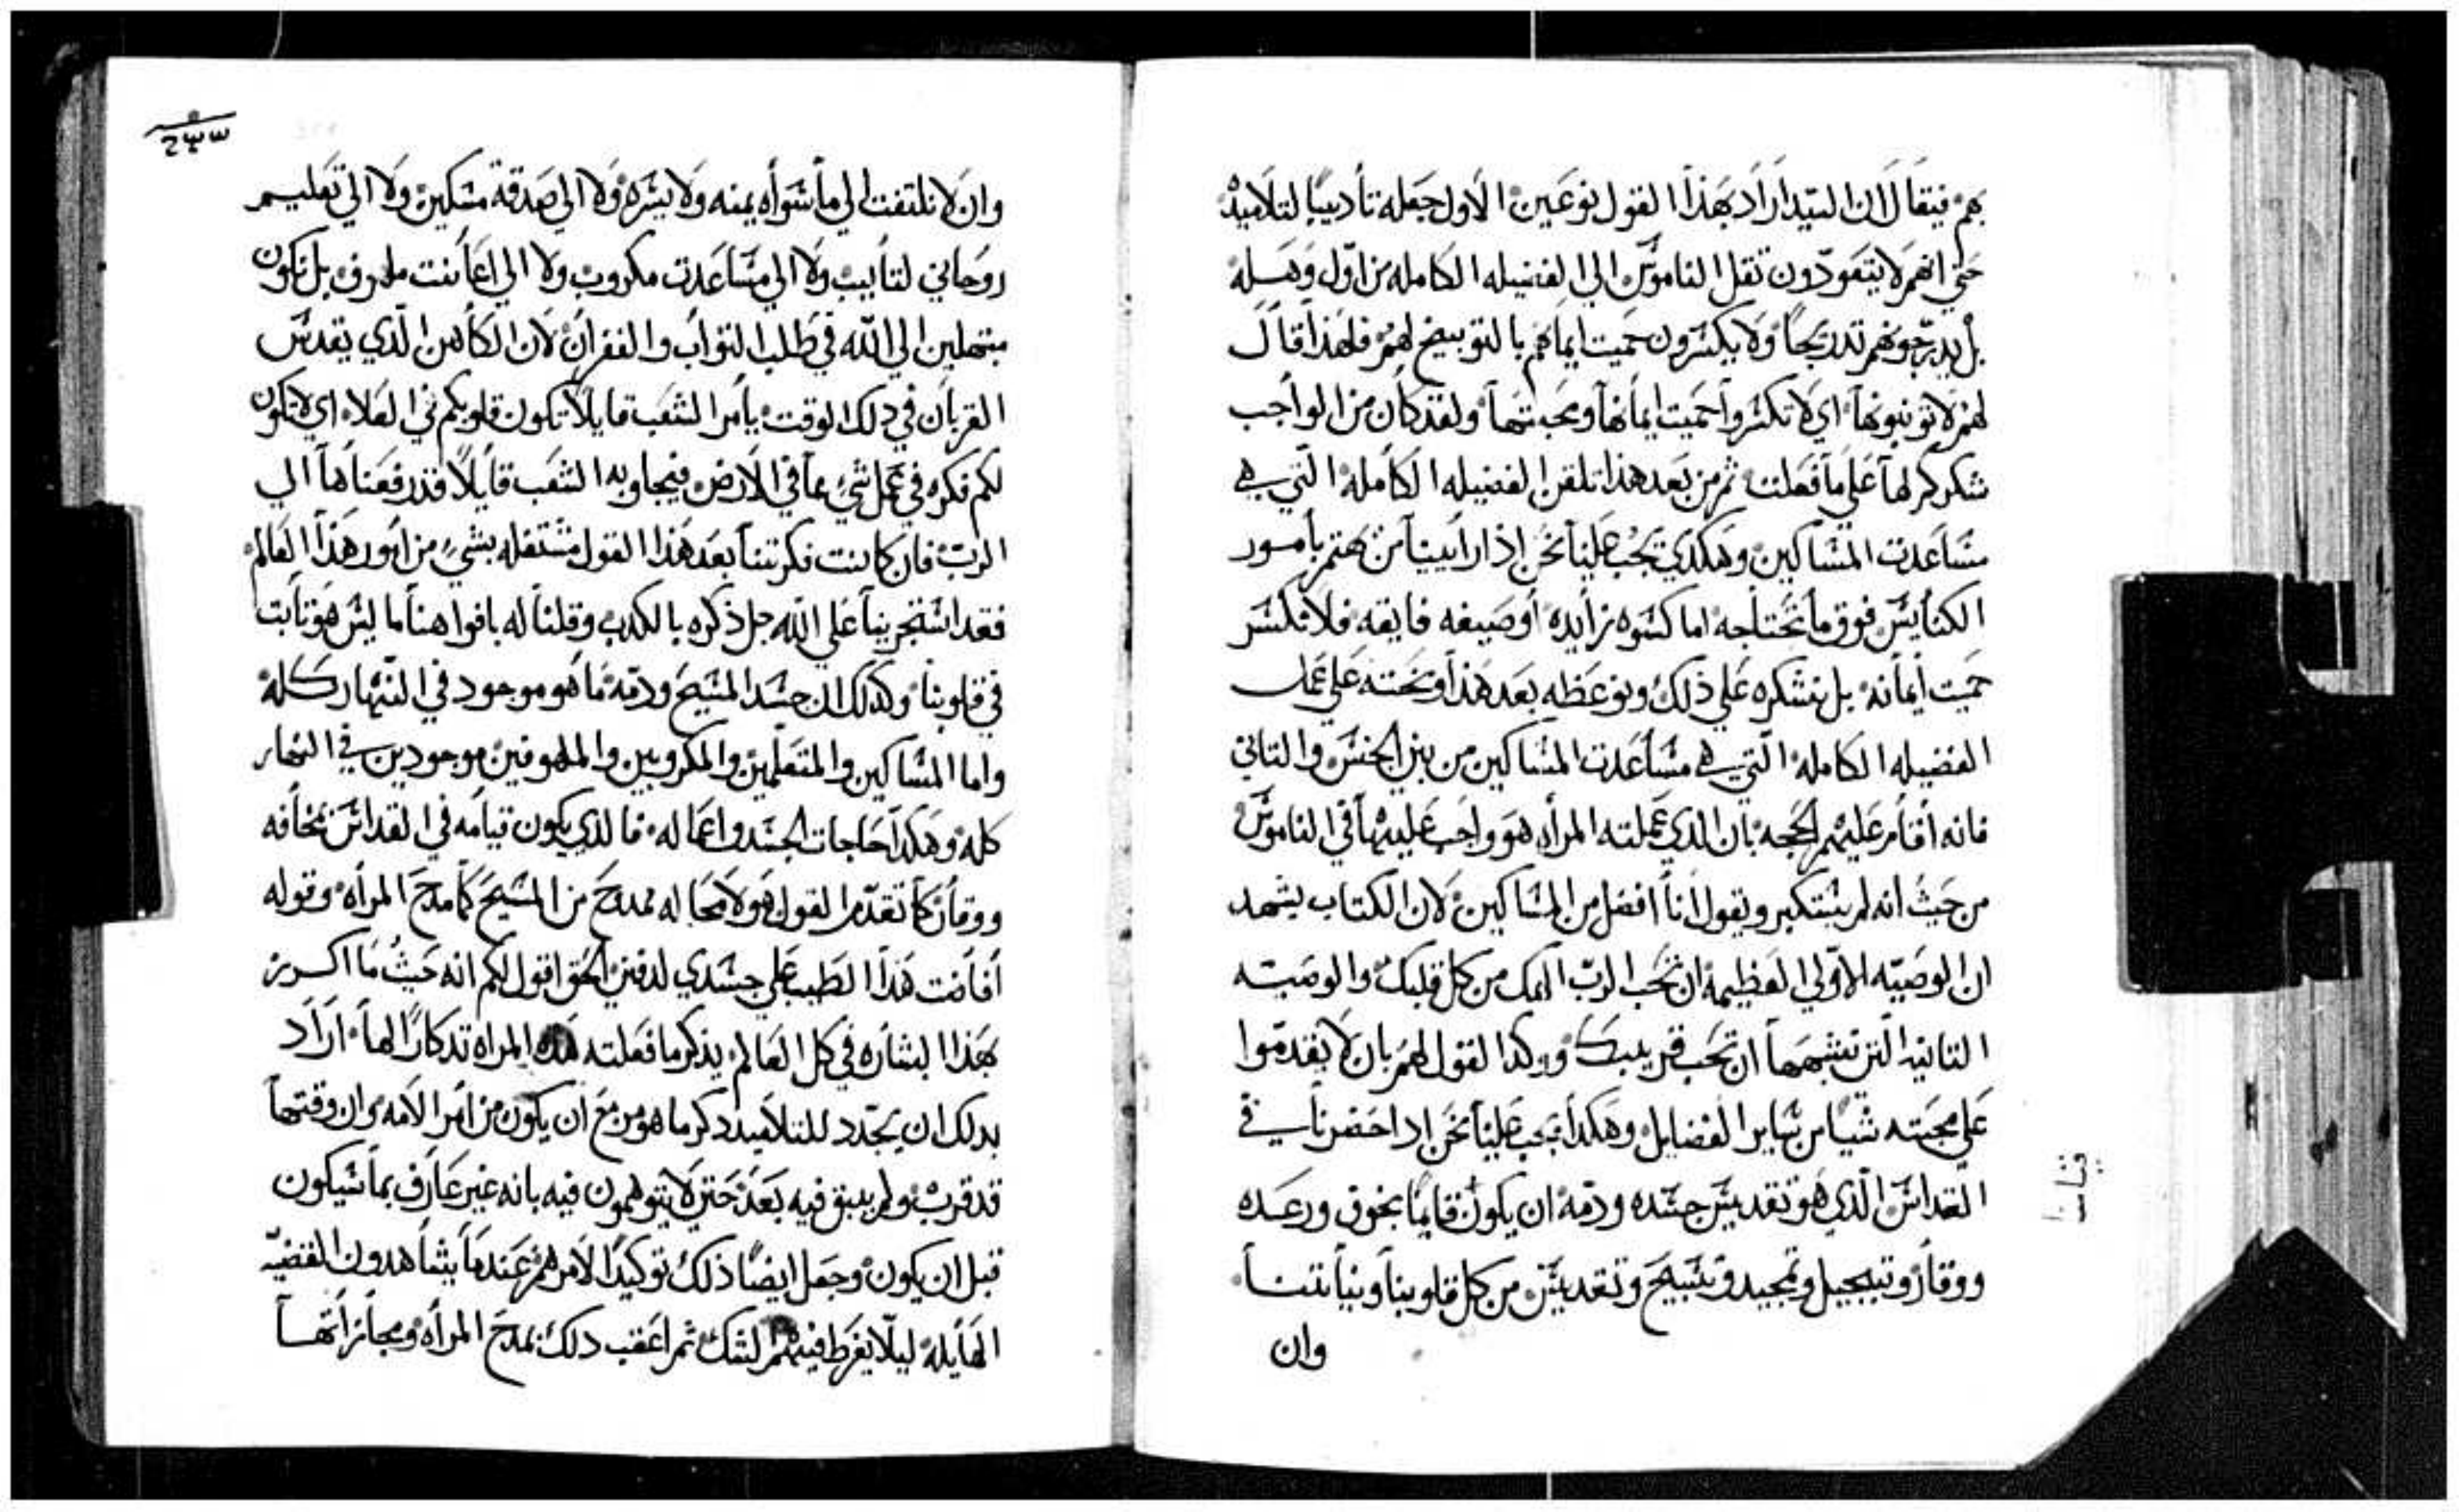 بهم فيقال ان السيد اراد بهذا القول نوعين الاول جعله تأديبًا لتلاميده
حتي انهم لا يتعودون تقل الناموس الي الفضيله الكامله من اول وهله
بل يدرجونهم تدريجًا ولا يكسرون حميت ايمانهم بالتوبيخ لهم فلهذا قال
لهم لا توبنوها اي لا تكسروا حميت ايمانها ومحبتها ولقد كان من الواجب
شكركم لها علي ما فعلت ثم من بعد هذا تلقن الفضيله الكامله التي هي
مساعدت المساكين وهكدي يجب علينا نحن اذا راينا من يهتم بامور
الكنايس فوق ما تحتاجه اما كسوه زايده أو صيغه فايقه فلا نكسر
حميت ايمانه بل نشكره علي ذلك ونوعظه بعد هذا ونحته علي عمل
الفضيله الكامله التي هي مساعدت المساكين من بني الجنس والتاني
فانه أقام عليهم الحجه بأن الدي عملته المرأه هو واجب عليهما في الناموس
من حيث أنه لم يستكبر ويقول أنا افضل من المساكين لان الكتاب يشهد
ان الوصيه الاولي العظيمة ان تحب الرب الهك من كل قلبك والوصيه
التانيه التي تشبهها ان تحب قريبك ووكدا لقول لهم بان لا يقدموا
علي محبته شيا من ساير الفضايل وهكدا يجب علينا نحن ادا حضرنا في
القداس الذي هو تقديس جسده ودمه ان يكون قايمًا بخوف ورعده
ووقار وتبجيل وتمجيد وتسبيح وتقديس من كل قلوبنا ونياتنا
وان
وان لا نلتفت الي ما سواه يمنه ولا يسره ولا الي صدقة مسكين ولا الي تعليم
روحاني لتايب ولا الي مساعدت مكروب ولا الي اعانت ملهوف بل نكون
مبتهلين الي الله في طلب التواب والغفران لان الكاهن الذي يقدس
القربان في دلك الوقت يأمر الشعب قايلا تكون قلوبكم في العلاء اي لا تكون
لكم فكره في عمل شيء مما في الارض فيجاوبه الشعب قايلا قد رفعناها الي
الرب فان كانت فكرتنا بعد هذا القول مشتغله بشيء من امور هذا العالم
فقد استجرينا علي الله جل ذكره بالكدب وقلنا له بافواهنا ما ليس هو تابت
في قلوبنا وكدلك ان جسد المسيح ودمه ما هو موجود في النهار كله
واما المساكين والمتعلمين والمكروبين والملهوفين موجودين في النهار
كله وهكدا حاجات الجسد واعماله فالدي يكون قيامه في القداس بمخافه
ووقار كما تقدم القول فهو لا محاله ممدوح من المسيح كما مدح المرأه وقوله
أفاضت هذا الطيب علي جسدي لدفني الحق اقول لكم انه حيث ما اكرز
بهذا البشاره في كل العالم يذكر ما فعلته هده المراه تدكارا لها اراد
بدلك ان يجدد للتلاميد دكر ما هو مزمع ان يكون من امر الامه وان وقتها
قد قرب ولم يبق فيه بعد حتي لا يتوهمون فيه بانه غير عارف بما سيكون
قبل ان يكون وجعل ايضًا ذلك توكيدًا لامرهم عندما يشاهدون القضيه
الهايله ليلا يفرط فيهم الشك ثم اعقب دلك بمدح المرأه ومجازاتها